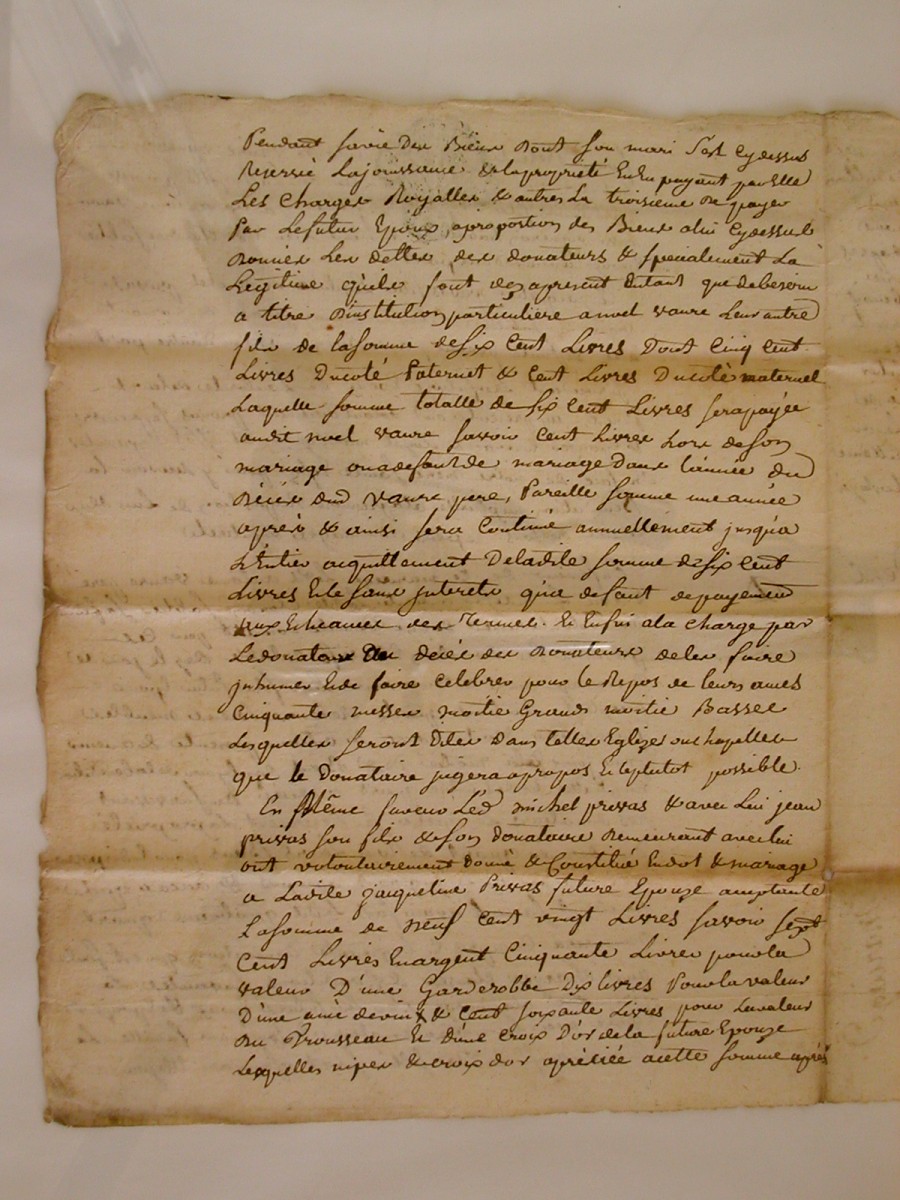 Pendant savie Des Biens Dont son mari s'est cydessus
Reservé Lajouissance & lapropriété EnEn payant parElle
Les Charges Royalles & autres La troisieme De payer
Par Lefutur Epoux, aproportion des Biens alui cydessus
Donnés Les dettes des donateurs & specialement La
Legitime qu'ils font des apresent Entant que debesoin
a titre D'institution particuliere a noel vaure Leur autre
fils de lasomme desix Cent Livres Dont Cinq Cent
Livres Ducoté Paternel & Cent Livres Ducoté maternel
Laquelle somme totalle de six Cent Livres serapayée
audit noel vaure savoir Cent Livres Lors deson
mariage ouadefautde mariage Dans l'année du
Décés dud vaure pere, Pareille somme une année
aprés & ainsi sera Continué annuellement jusqu'a
L'Entier acquittement Deladite somme desix Cent
Livres Etle sans interets qu'a defaut depayement
aux Echeances des Termes. Et Enfin ala Charge par
Ledonataire décés des Donateurs deles faire
jnhumer Etde faire Celebrer pour le Repos de leurs ames
Cinquante messes moitié Grands moitié Basses
Lesquelles seront Dites Dans telles Eglises ouchapelles
que le Donataire jugera apropos Et leplutot possible.
En Même faveur Led michel privas & avec Lui jean
privas son fils & son Donataire Demeurant aveclui
ont volontairement Donné & Constitué Endot & mariage
a Ladite jacqueline Privas future Epouze acceptante
Lasomme de neuf Cent vingt Livres savoir sept
Cent Livres Enargent Cinquante Livres pourla
valeur D'une Garderobbe Dix livres Pour la valeur
D'une anée devin & Cent soixante Livres pour Lavaleur
Du Trousseau Et d'une Croix D'or dela future Epouze
Lesquelles nipes & croix dor apretiée acette somme aprés